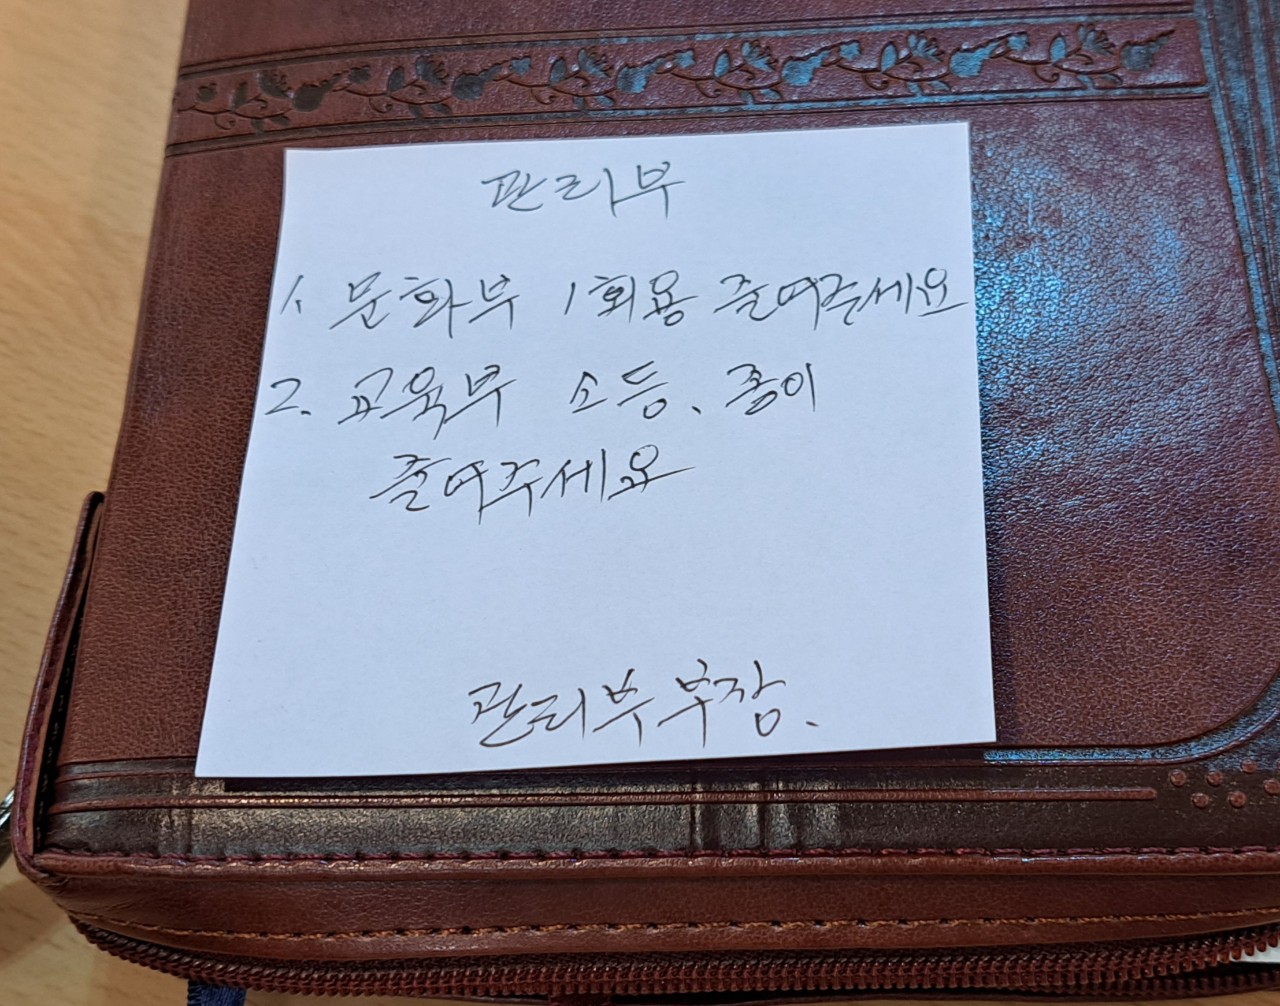 관리부
1. 문화부 1회용 줄여주세요
2. 교육부 소등、종이
줄여주세요
관리부 부장.